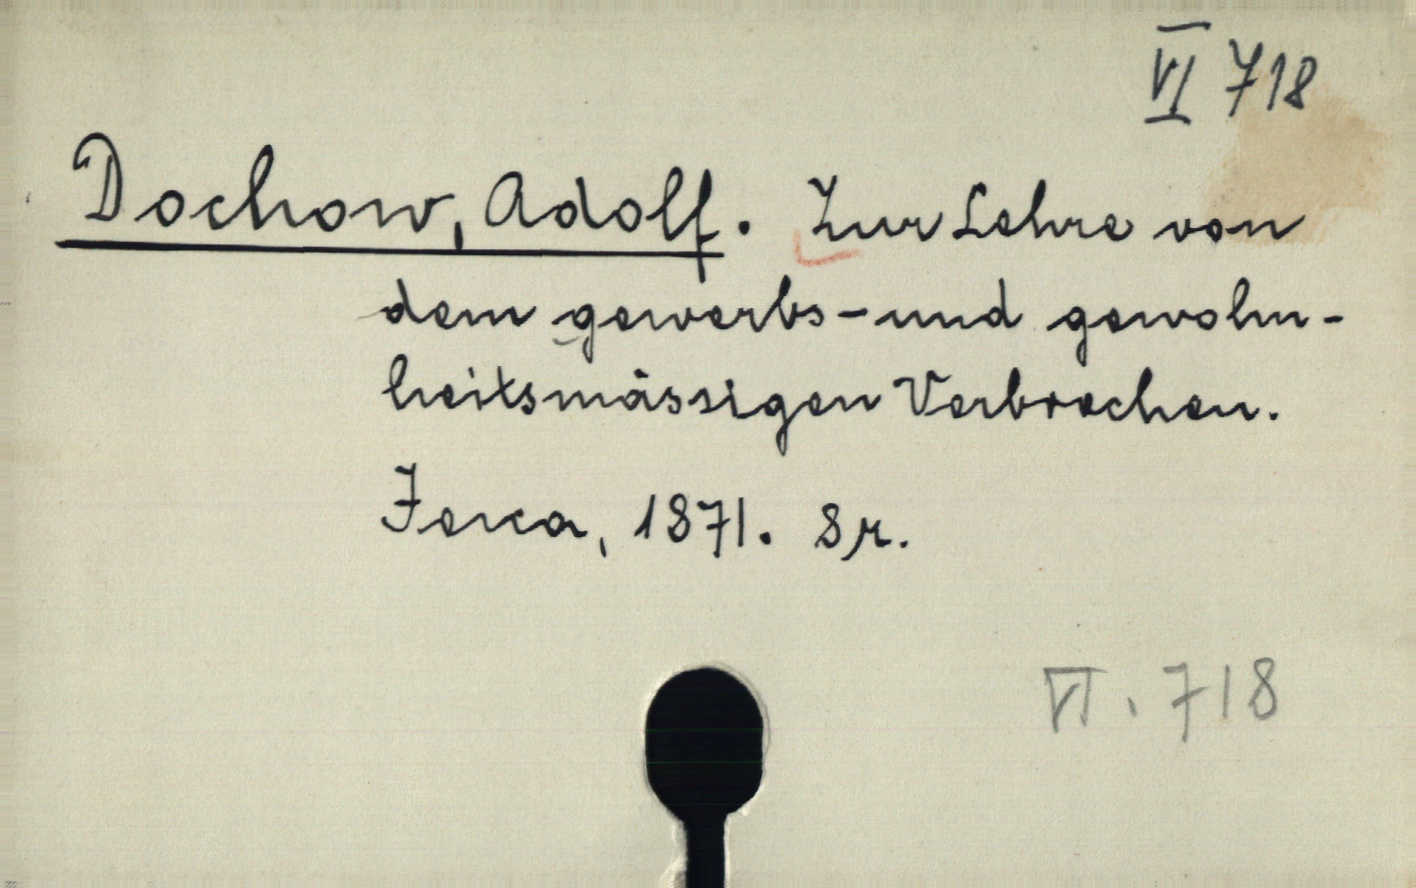 VI 718
Dochow, Adolf. Zur Lehre von
dem gewerbs- und gewohn-
heitsmässigen Verbrechen.
Jena, 1871. 8r.
VI. 718